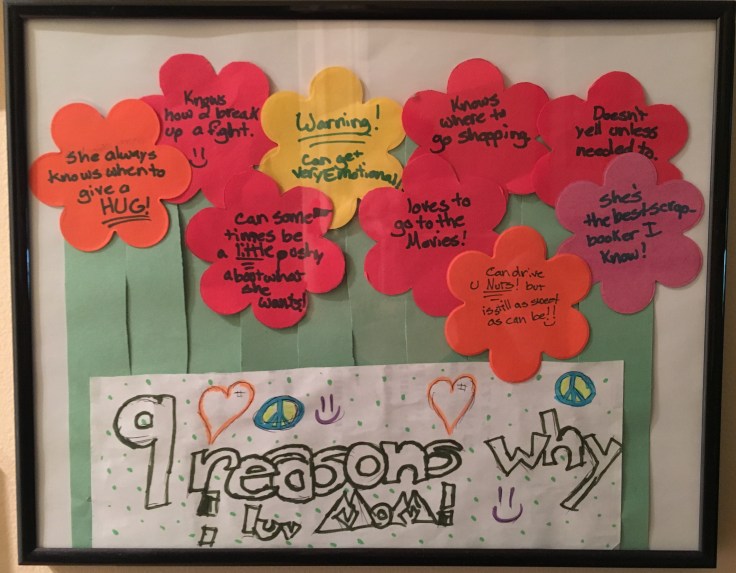 She always
knows when to
give a
HUG!
Knows
how 2 break
up a fight.
Warning!
can get
very Emotional!
Knows
where to
go shopping.
Doesn't
yell unless
needed to.
can some
times be
a little pushy
about what
she
wants!
loves to
go to the
Movies!
She's
the best scrap-
booker I
know!
Can drive
u Nuts! but
is still as sweet
as can be!!
9 reasons why
i luv MOM!